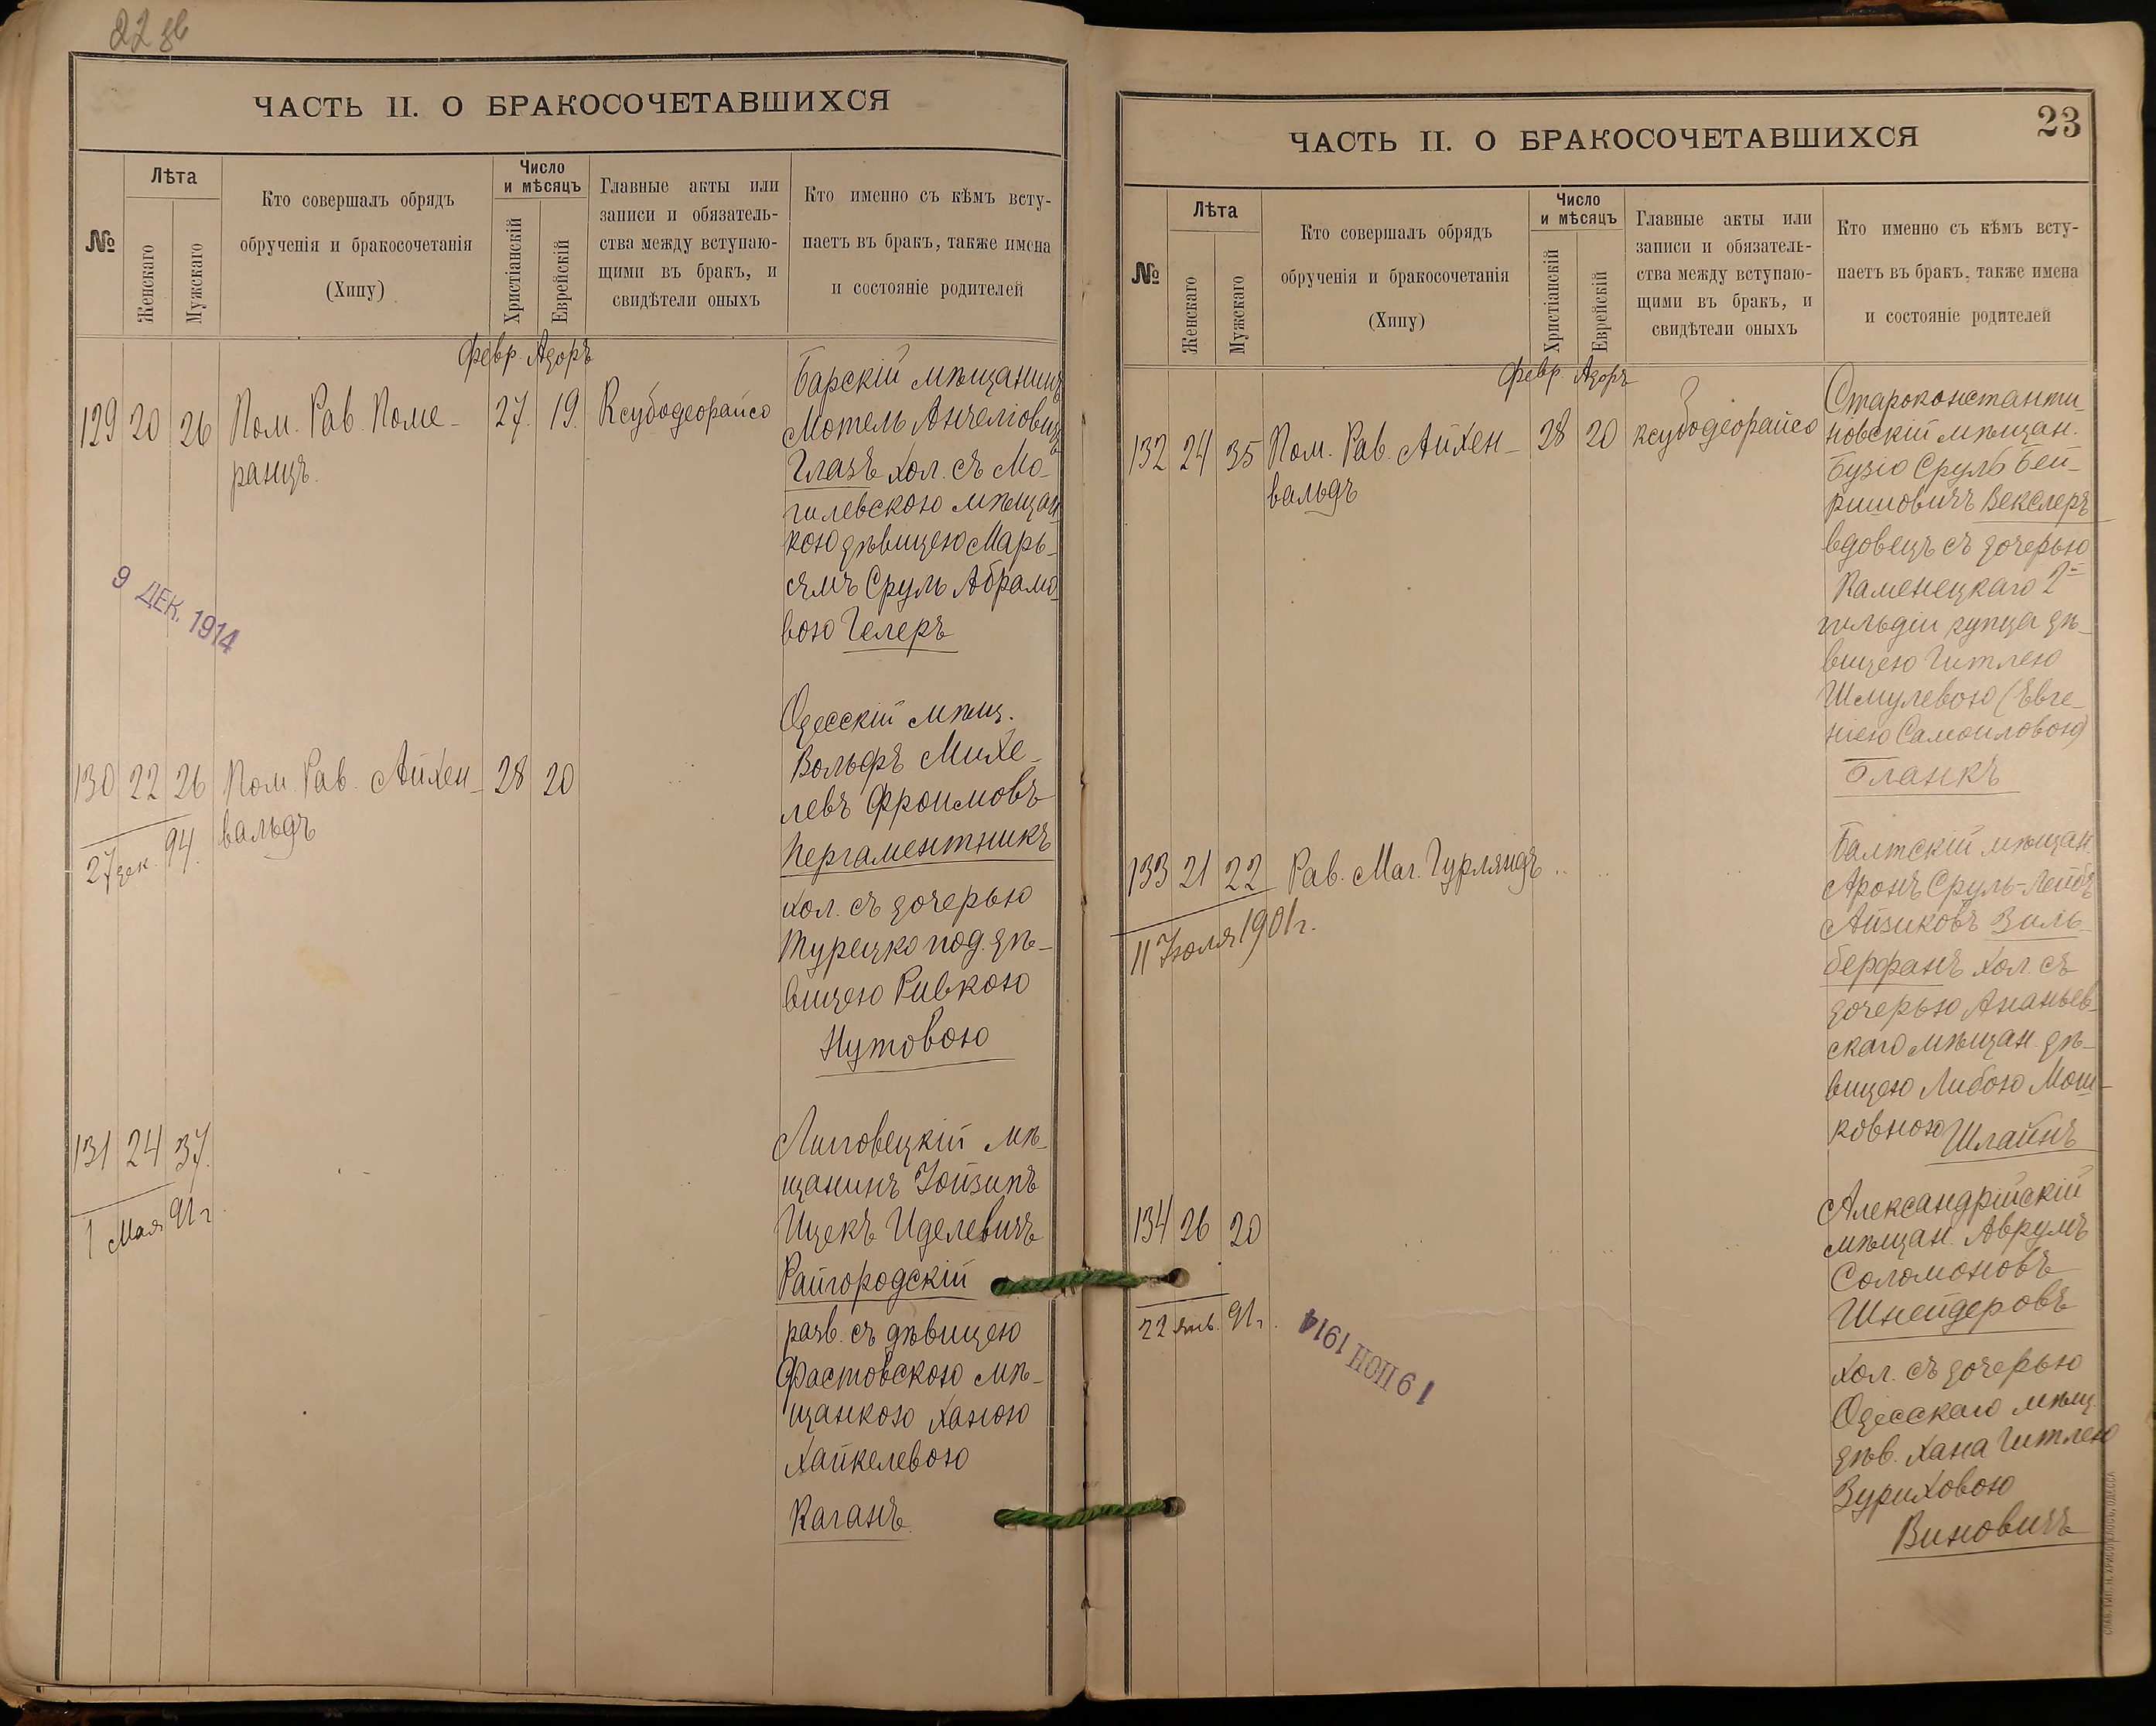 22 об
ЧАСТЬ II. О БРАКОСОЧЕТАВШИХСЯ
№
Лѣта
Женскаго
Мужскаго
Кто совершалъ обрядъ
обрученія и бракосочетанія
(Хипу)
Число
и мѣсяцъ
Христіанскій
Еврейскій
Главные акты или
записи и обязатель-
ства между вступаю-
щими въ бракъ, и
свидѣтели оныхъ
Кто именно съ кѣмъ всту-
паетъ въ бракъ, также имена
и состояніе родителей
Февр. Адоръ
129 20 26 Пом. Рав. Поме-
ранцъ.
27. 19. Ксубодеорайсо
Барскій мѣщанинъ
Мотель Анчелiовичъ
Глазъ хол. съ Мо-
гилевскою мѣщан
кою дѣвицею Марь-
ямъ Сруль Абрамо-
вою Гелеръ
9 ДЕК. 1914
130 22 26 Пом. Рав. Айхен-
вальдъ
28 20
27 дек. 94.
Одесскій мѣщ.
Вольфъ Михе-
левъ Фроимовъ
Пергаментникъ
хол. съ дочерью
Турецко под. дѣ-
вицею Ривкою
Нутовою
131 24 37.
1 Мая 91 г.
Липовецкій мѣ-
щанинъ Іойзипъ
Ицекъ Иделевичъ
Райгородскій
разв. съ дѣвицею
Фастовскою мѣ-
щанкою Ханою
Хайкелевою
Каганъ.
23
ЧАСТЬ II. О БРАКОСОЧЕТАВШИХСЯ
№
Лѣта
Женскаго
Мужскаго
Кто совершалъ обрядъ
обрученія и бракосочетанія
(Хипу)
Число
и мѣсяцъ
Христіанскій
Еврейскій
Главные акты или
записи и обязатель-
ства между вступаю-
щими въ бракъ, и
свидѣтели оныхъ
Кто именно съ кѣмъ всту-
паетъ въ бракъ, также имена
и состояніе родителей
Февр. Адоръ
132 24 35 Пом. Рав. Айхен-
вальдъ
28 20 ксубодеорайсо
Староконстанти-
новскій мѣщан.
Бузiо Сруль Бей-
ришовичъ Векслеръ
вдовецъ съ дочерью
Каменецкаго 2й
гильдіи купца дѣ-
вицею Гитлею
Шмулевою (Евге-
ніею Самоиловою)
Бланкъ
133 21 22 Рав. Маг. Гурляндъ
11 Іюля 1901 г.
Балтскій мѣщан.
Аронъ Сруль-Лейбъ
Айзиковъ Зиль-
берфанъ хол. съ
дочерью Ананьев-
скаго мѣщан. дѣ-
вицею Либою Мош-
ковною Шлаинъ
134 26 20
22 янв. 91 г.
19 ІЮН 1914
Александрійскій
мѣщан. Аврумъ
Соломоновъ
Шнейдеровъ
хол. съ дочерью
Одесскаго мѣщ.
дѣв. Хана Гитлею
Зуриховою
Виновичъ